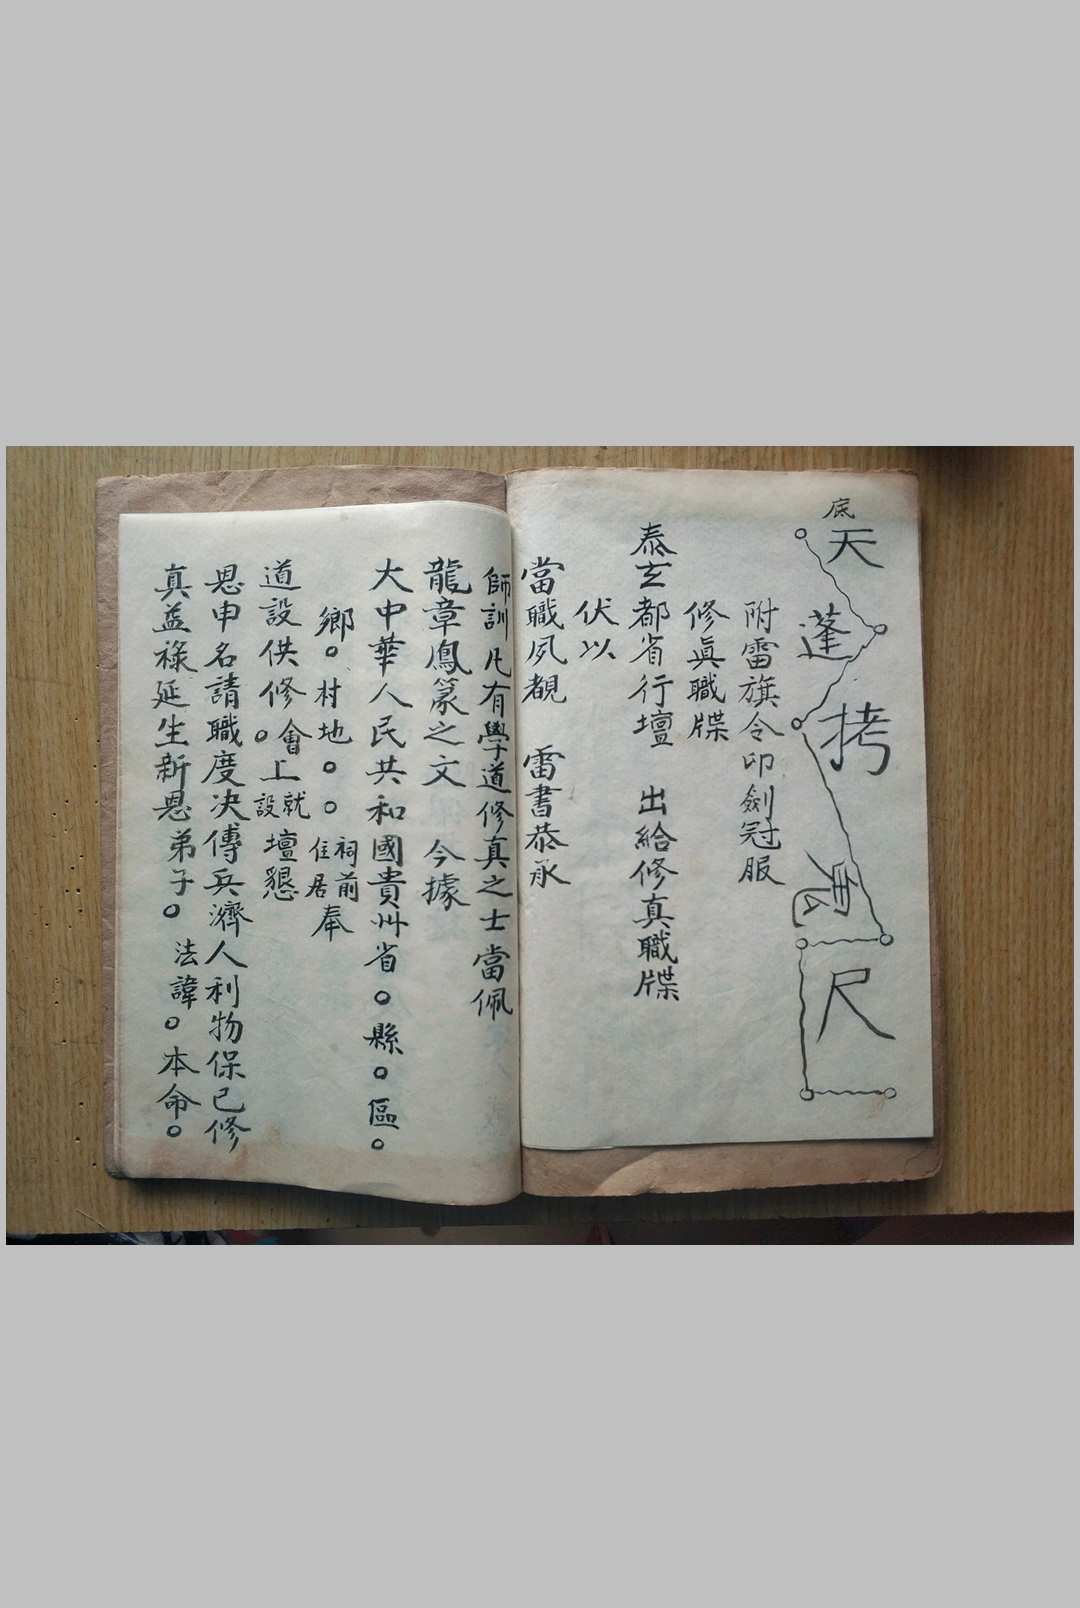 底
天蓬拷尺
附雷旗令印劍冠服
修眞職牒
泰玄都省行壇 出給修真職牒
伏以
當職夙覩 雷書恭承
師訓凡有學道修真之士當佩
龍章鳳篆之文 今據
大中華人民共和國貴州省○縣○區○
鄉○村地○○祠前住居奉
道設供修○會上就設壇懇
恩申名請職度决傳兵濟人利物保己修
真益祿延生新恩弟子○ 法諱○本命○